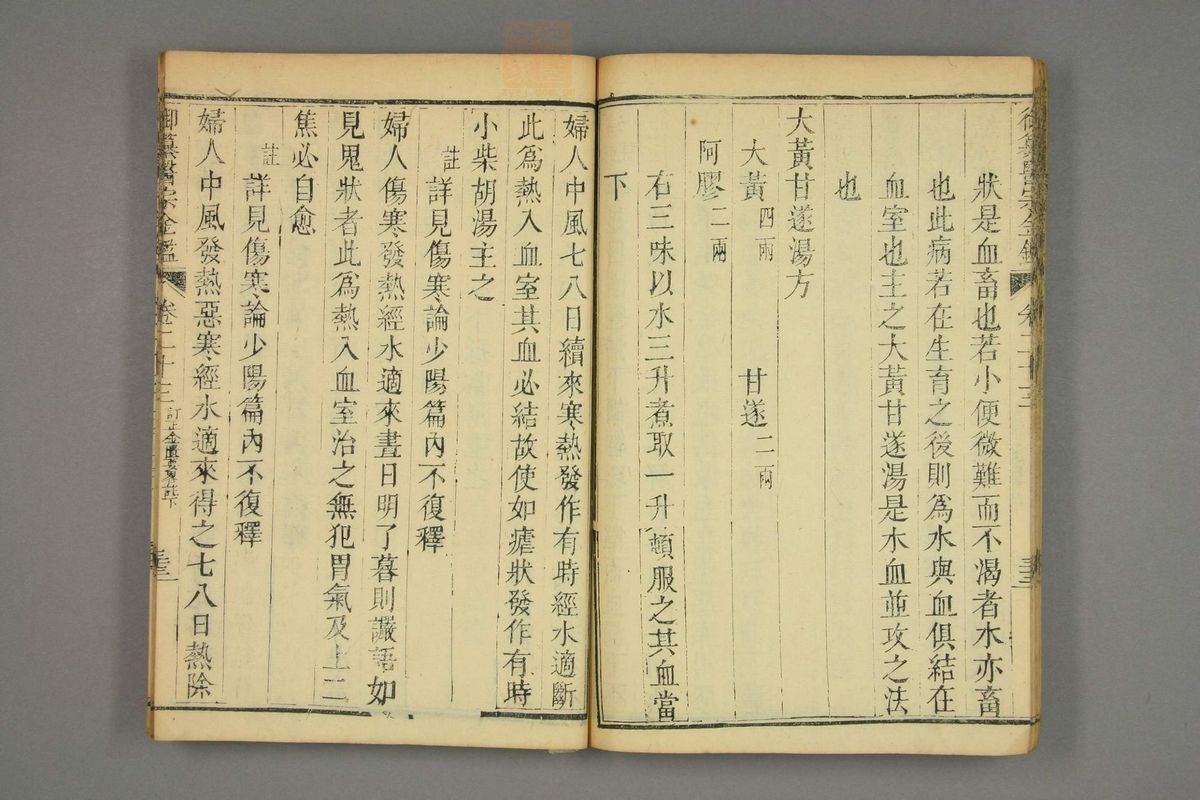 狀是血畜也若小便微難而不渴者水亦畜
也此病若在生育之後則爲水與血俱結在
血室也主之大黃甘遂湯是水血並攻之法
也
大黃甘遂湯方
大黃四兩 甘遂二兩
阿膠二兩
右三味以水三升煮取一升頓服之其血當
下
婦人中風七八日續來寒熱發作有時經水適斷
此爲熱入血室其血必結故使如瘧狀發作有時
小柴胡湯主之
註詳見傷寒論少陽篇內不復釋
婦人傷寒發熱經水適來晝日明了暮則讝語如
見鬼狀者此爲熱入血室治之無犯胃氣及上二
焦必自愈
註詳見傷寒論少陽篇內不復釋
婦人中風發熱惡寒經水適來得之七八日熱除
御纂醫宗金鑑 卷二十三